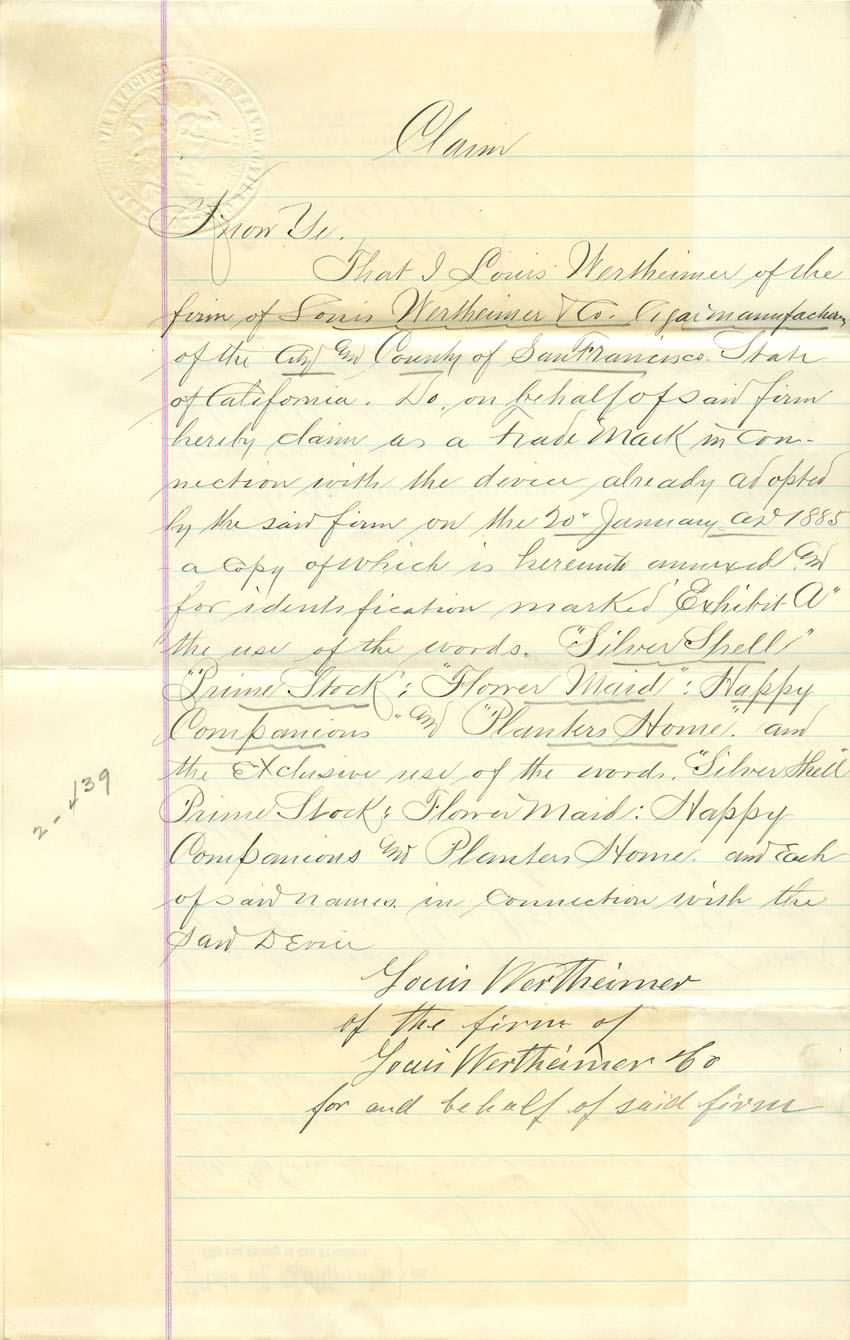 Claim
Know Ye.
That I Louis Wertheimer of the
firm of Louis Wertheimer & Co. Cigar manufacturers
of the City and County of San Francisco. State
of California. Do, on behalf of said firm
hereby claim as a Trade Mark in con-
nection with the device already adopted
by the said firm on the 20" January AD 1885
a copy of which is hereunto annexed and
for identification marked "Exhibit A"
the use of the words. "Silver Shell"
"Prime Stock"; "Flower Maid": Happy
Companions" and "Planters Home". and
the Exclusive use of the words. "Silver Shell
Prime Stock; Flower Maid: Happy
Companions and Planters Home. and Each
of said names. in connection with the
said Device
Louis Wertheimer
of the firm of
Louis Wertheimer & Co
for and behalf of said firm